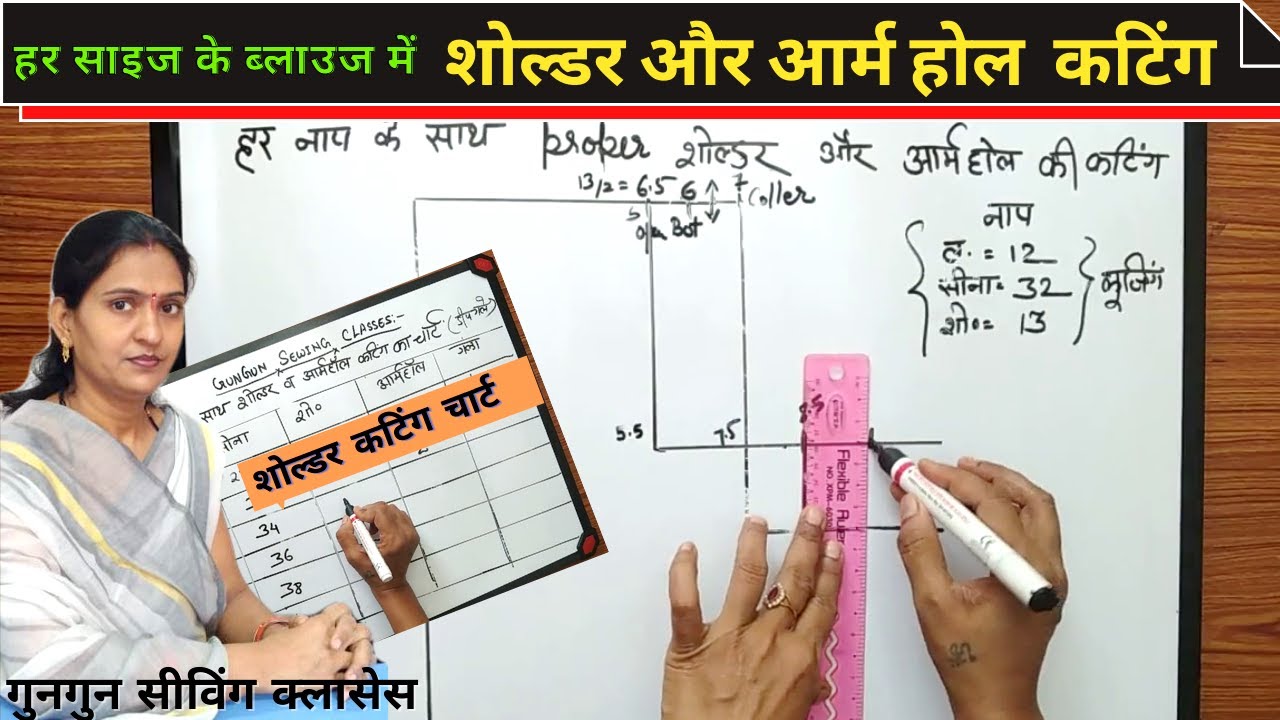 हर साइज के ब्लाउज में शोल्डर और आर्म होल कटिंग
हर नाप के साथ proper शोल्डर और आर्महोल की कटिंग
13/2 = 6.5 6 7 Coller
5
Bot
नाप
ल. = 12
सीना = 32
शो० = 13
लूजिंग
5.5 7.5
8.5
Flexible Ruler
GUNGUN SEWING CLASSES:-
साथ शोल्डर व आर्महॉल कटिंग का चार्ट (डीप गले)
शो० आर्महॉल गला
शोल्डर कटिंग चार्ट
34
36
38
गुनगुन सीविंग क्लासेस